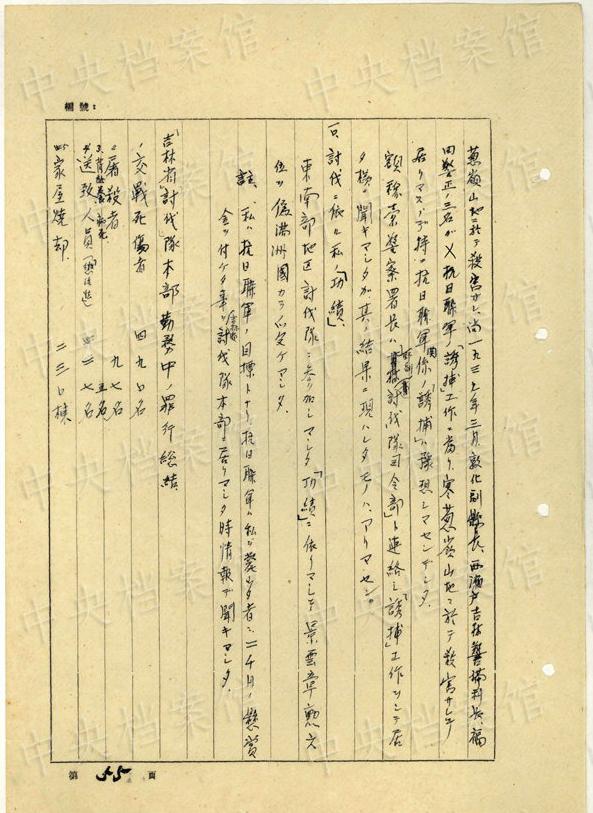 編號：
葱嶺山地ニ於テ殺害サレ、尚一九三七年三月敦化副縣長、西瀬戸吉林警務科長、福
田警正ノ三名ガ抗日聯軍ノ「誘捕」工作ノ為リ、寒葱嶺山地ニ於テ殺害サレテ
居リマスノデ特ニ抗日聯軍関係ノ「誘捕」ハ豫想シマセンデシタ。
額穆索警察署長ハ討伐隊司令部ト連絡シ「誘捕」工作ヲシテ居
タ様ニ聞キマシタガ其ノ結果ニ現ハレタモノハアリマセン。
討伐ニ依ル私ノ「功績」
東南部地区討伐隊ニ参加シマシタ「功績」ニ依リマシテ景雲章勲六
位ヲ偽満洲國カラ受ケマシタ。
註、私ハ抗日聯軍ノ目標トナリ抗日聯軍ハ私ヲ斃シタ者ニ二千円ノ懸賞
金ヲ付ケタ事ヲ討伐隊本部ニ居リマシタ時情報デ聞キマシタ。
「吉林省」討伐隊本部勤務中ノ罪行総結
交戦死傷者 四九〇名
屠殺者 九七名
五名
送致人員 七名
家屋焼却 二三〇棟
第 55 頁
中央档案馆